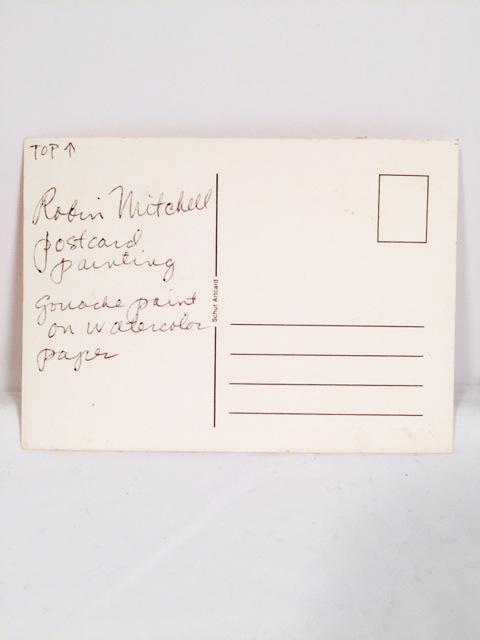 TOP ↑
Robin Mitchell
postcard
painting
Gouache paint
on watercolor
paper
Schut Artcard